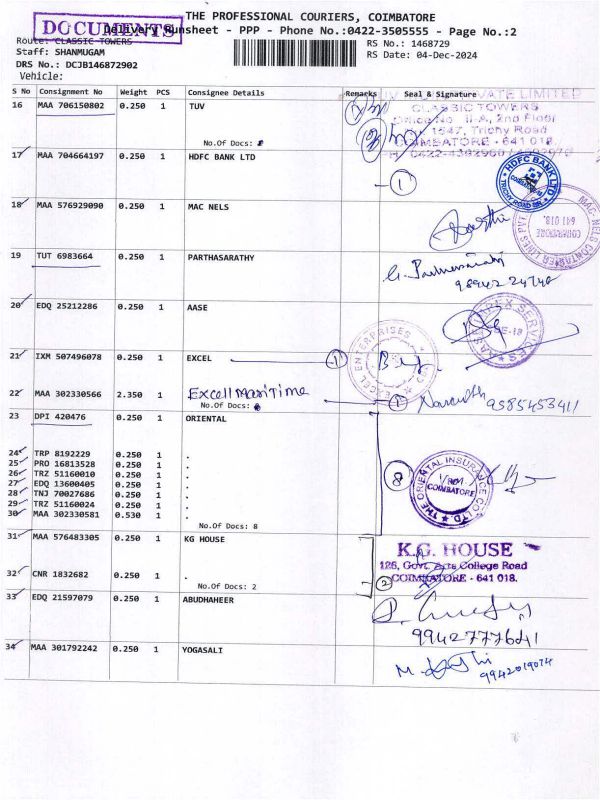 THE PROFESSIONAL COURIERS, COIMBATORE
DOCUMENTS
Delivery Runsheet - PPP - Phone No.:0422-3505555 - Page No.:2
Route: CLASSIC TOWERS
RS No.: 1468729
Staff: SHANMUGAM
RS Date: 04-Dec-2024
DRS No.: DCJB146872902
Vehicle:
S No Consignment No Weight PCS Consignee Details Remarks Seal & Signature
PRIVATE LIMITED
16 MAA 706150802 0.250 1 TUV
CLASSIC TOWERS
Office No. II-A, 2nd Floor
1547, Trichy Road
No.Of Docs:
COIMBATORE - 641 018.
17 MAA 704664197 0.250 1 HDFC BANK LTD
1
HDFC BANK LTD
COIMBATORE
TRICHY ROAD
18 MAA 576929090 0.250 1 MAC NELS
MAC-NELS CONTAINER LINES PVT
COIMBATORE
641 018.
19 TUT 6983664 0.250 1 PARTHASARATHY
20 EDQ 25212286 0.250 1 AASE
APEX SERVICES
21 IXM 507496078 0.250 1 EXCEL
1
EXCEL ENTERPRISES
22 MAA 302330566 2.350 1 Excell Maritime
No.Of Docs:
1
9585453411
23 DPI 420476 0.250 1 ORIENTAL
24 TRP 8192229 0.250 1 .
25 PRO 16813528 0.250 1 .
26 TRZ 51160010 0.250 1 .
27 EDQ 13600405 0.250 1 .
28 TNJ 70027686 0.250 1 .
29 TRZ 51160024 0.250 1 .
30 MAA 302330581 0.530 1 .
No.Of Docs: 8
8
THE ORIENTAL INSURANCE CO LTD.
COIMBATORE
31 MAA 576483305 0.250 1 KG HOUSE
K.G. HOUSE
126, Govt. Arts College Road
32 CNR 1832682 0.250 1 .
COIMBATORE - 641 018.
No.Of Docs: 2
2
33 EDQ 21597079 0.250 1 ABUDHAHEER
34 MAA 301792242 0.250 1 YOGASALI
9942019014